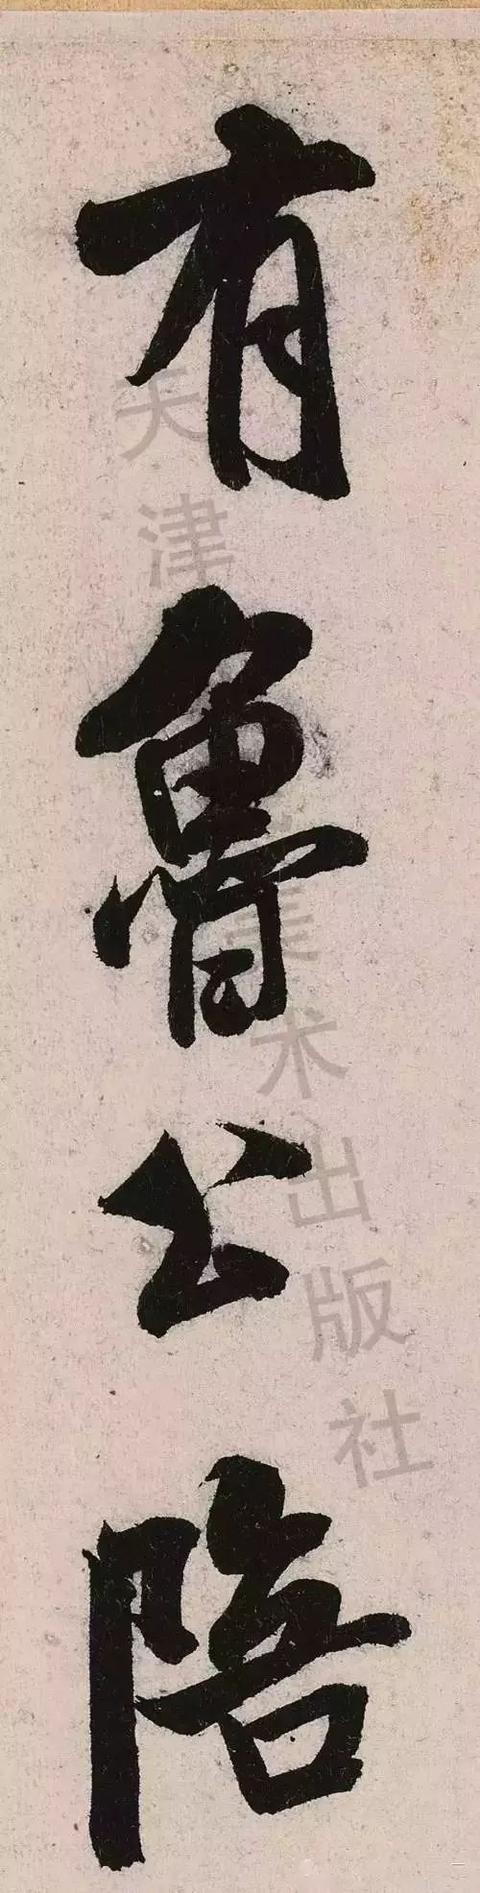 有魯公陪
天津美术出版社